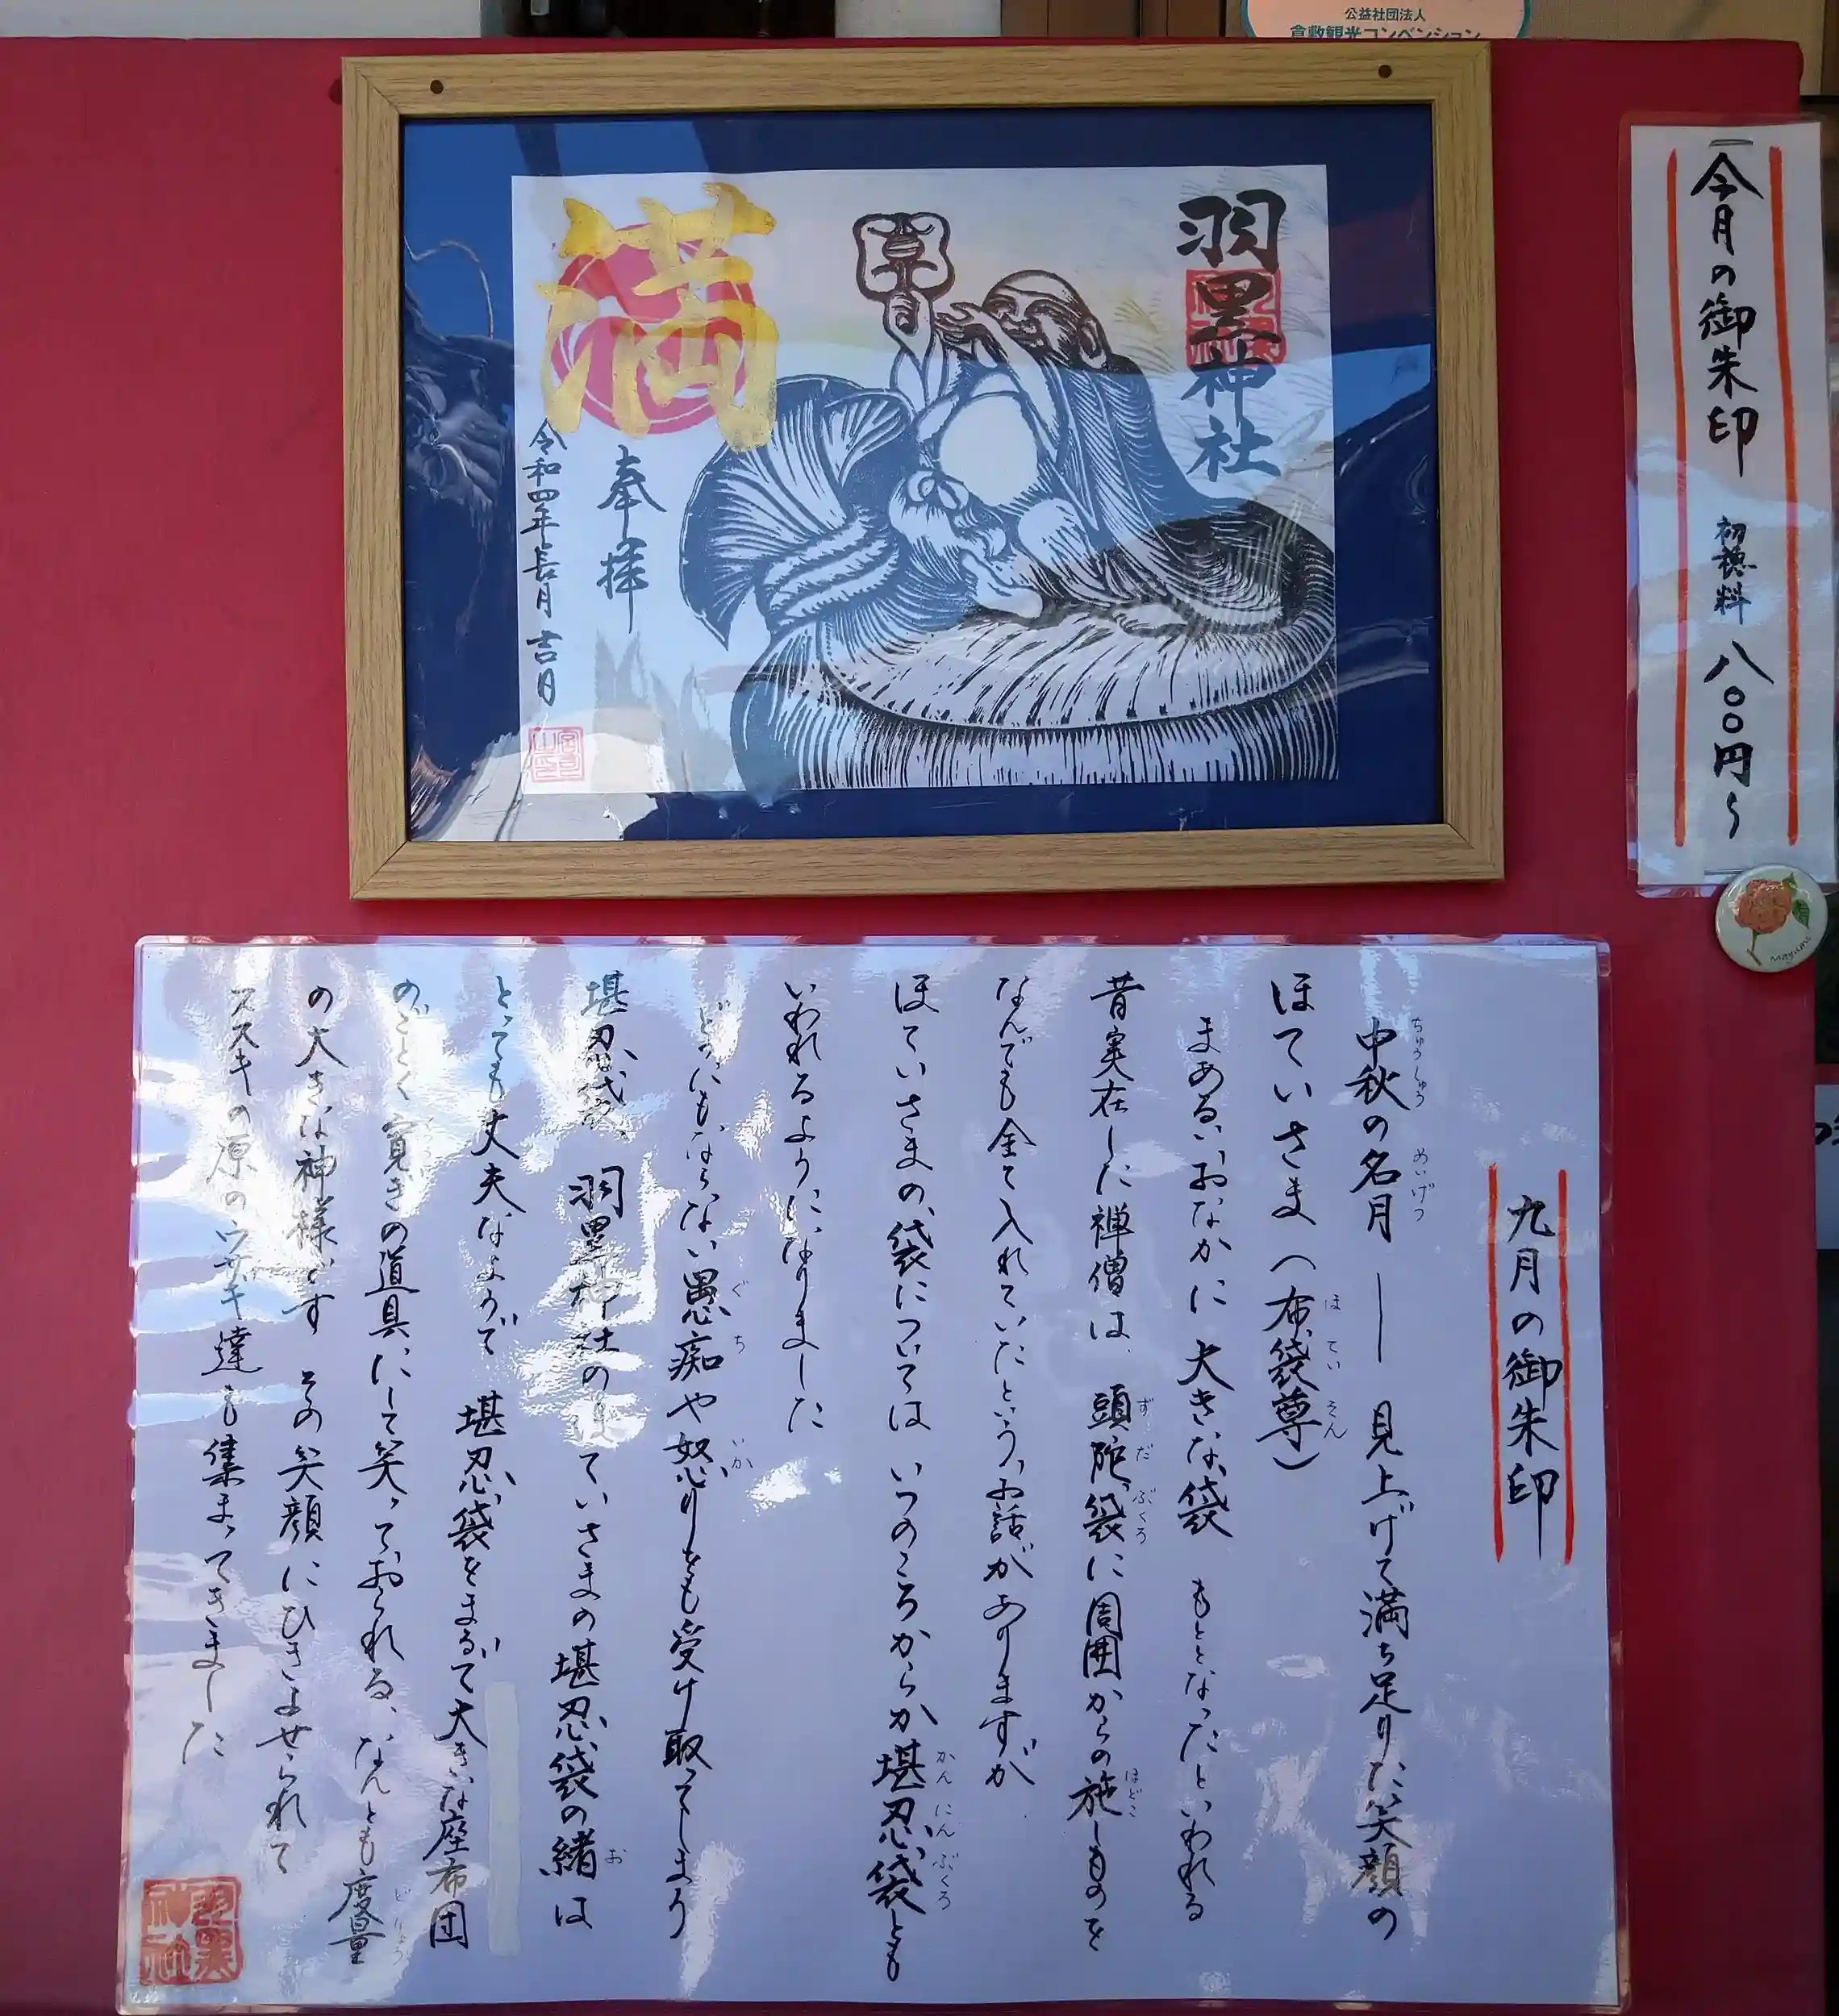 公益社団法人
倉敷観光コンベンション
今月の御朱印 初穂料 八〇〇円〜
羽黒神社
満
奉拝
令和四年長月吉日
Mayumi
九月の御朱印
中秋の名月 ― 見上げて満ち足りた笑顔の
ちゅうしゅう めいげつ
ほていさま(布袋尊)
ほ てい そん
まあるいおなかに大きな袋 もととなったといわれる
昔実在した禅僧は、頭陀袋に周囲からの施しものを
ず だ ぶくろ ほどこ
なんでも全て入れていたというお話がありますが
ほていさまの袋については いつのころからか堪忍袋とも
かん にん ぶくろ
いわれるようになりました
どうにもならない愚痴や怒りをも受け取ってしまう
ぐ ち いか
堪忍袋、羽黒神社のほていさまの堪忍袋の緒は
お
とっても丈夫なようで 堪忍袋をまるで大きな座布団
のごとく寛ぎの道具にして笑っておられる、なんとも度量
どりょう
の大きな神様です その笑顔にひきよせられて
ススキの原のウサギ達も集まってきました
羽黒神社